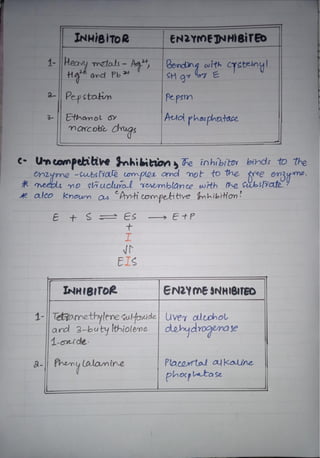 INHIBITOR ENZYME INHIBITED
1- Heavy metals - Ag2+, Bonding with cysteinyl
Hg2+ and Pb2+ SH gr of E
2- Pepstatin Pepsin
3- Ethanol or Acid phosphatase
narcotic drugs
c- Uncompetitive Inhibition, The inhibitor binds to the
enzyme-substrate complex and not to the free enzyme.
* needs no structural resemblance with the substrate
* also known as "Anti competitive Inhibition"
E + S ⇌ ES → E+P
+
I
⇅
EIS
INHIBITOR ENZYME INHIBITED
1- Tetramethylene sulfoxide Liver alcohol
and 3-butylthiolene dehydrogenase
1-oxide
2- Phenylalanine Placental alkaline
phosphatase